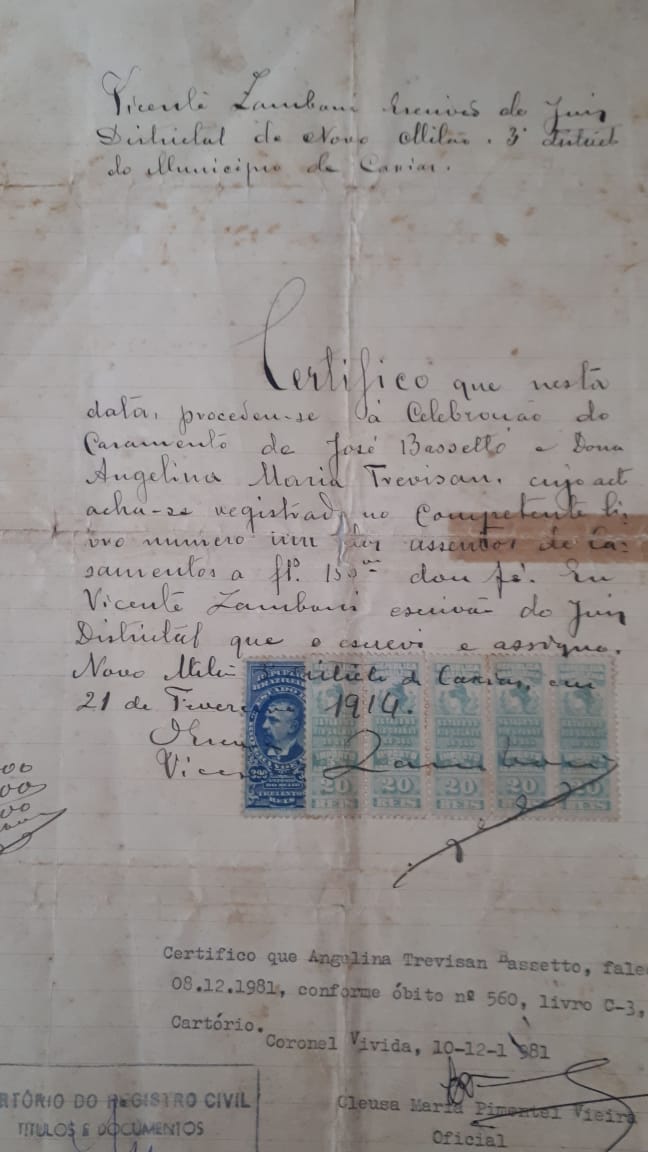 Vicente Zambani Escrivão do Juiz
Districtal de Novo Milão. 3º District
do Municipio de Caxias.
Certifico que nesta
data, procedeu-se à Celebração do
Casamento de José Bassetto e Dona
Angelina Maria Trevisan. cujo act
acha-se registrado no Competente li-
vro numero um assentos de ca-
samentos a fls. dou fé. Eu
Vicente Zambani escrivão do Juiz
Districtal que o escrevi e assigno.
Novo Milão de Caxias, em
21 de Fevereiro 1914.
Vicente Zambani
200
TREZENTOS
REIS
20 20 20 20 20
REIS REIS REIS REIS REIS
Certifico que Angelina Trevisan Bassetto, fale
08.12.1981, conforme óbito nº 560, livro C-3,
Cartório.
Coronel Vivida, 10-12-1981
Cleusa Maria Pimentel Vieira
Oficial
RTÓRIO DO REGISTRO CIVIL
TITULOS E DOCUMENTOS